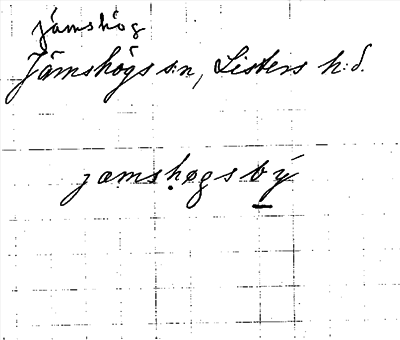 jämshög
Jämshögs s:n, Listers h:d.
jamshøgs bý